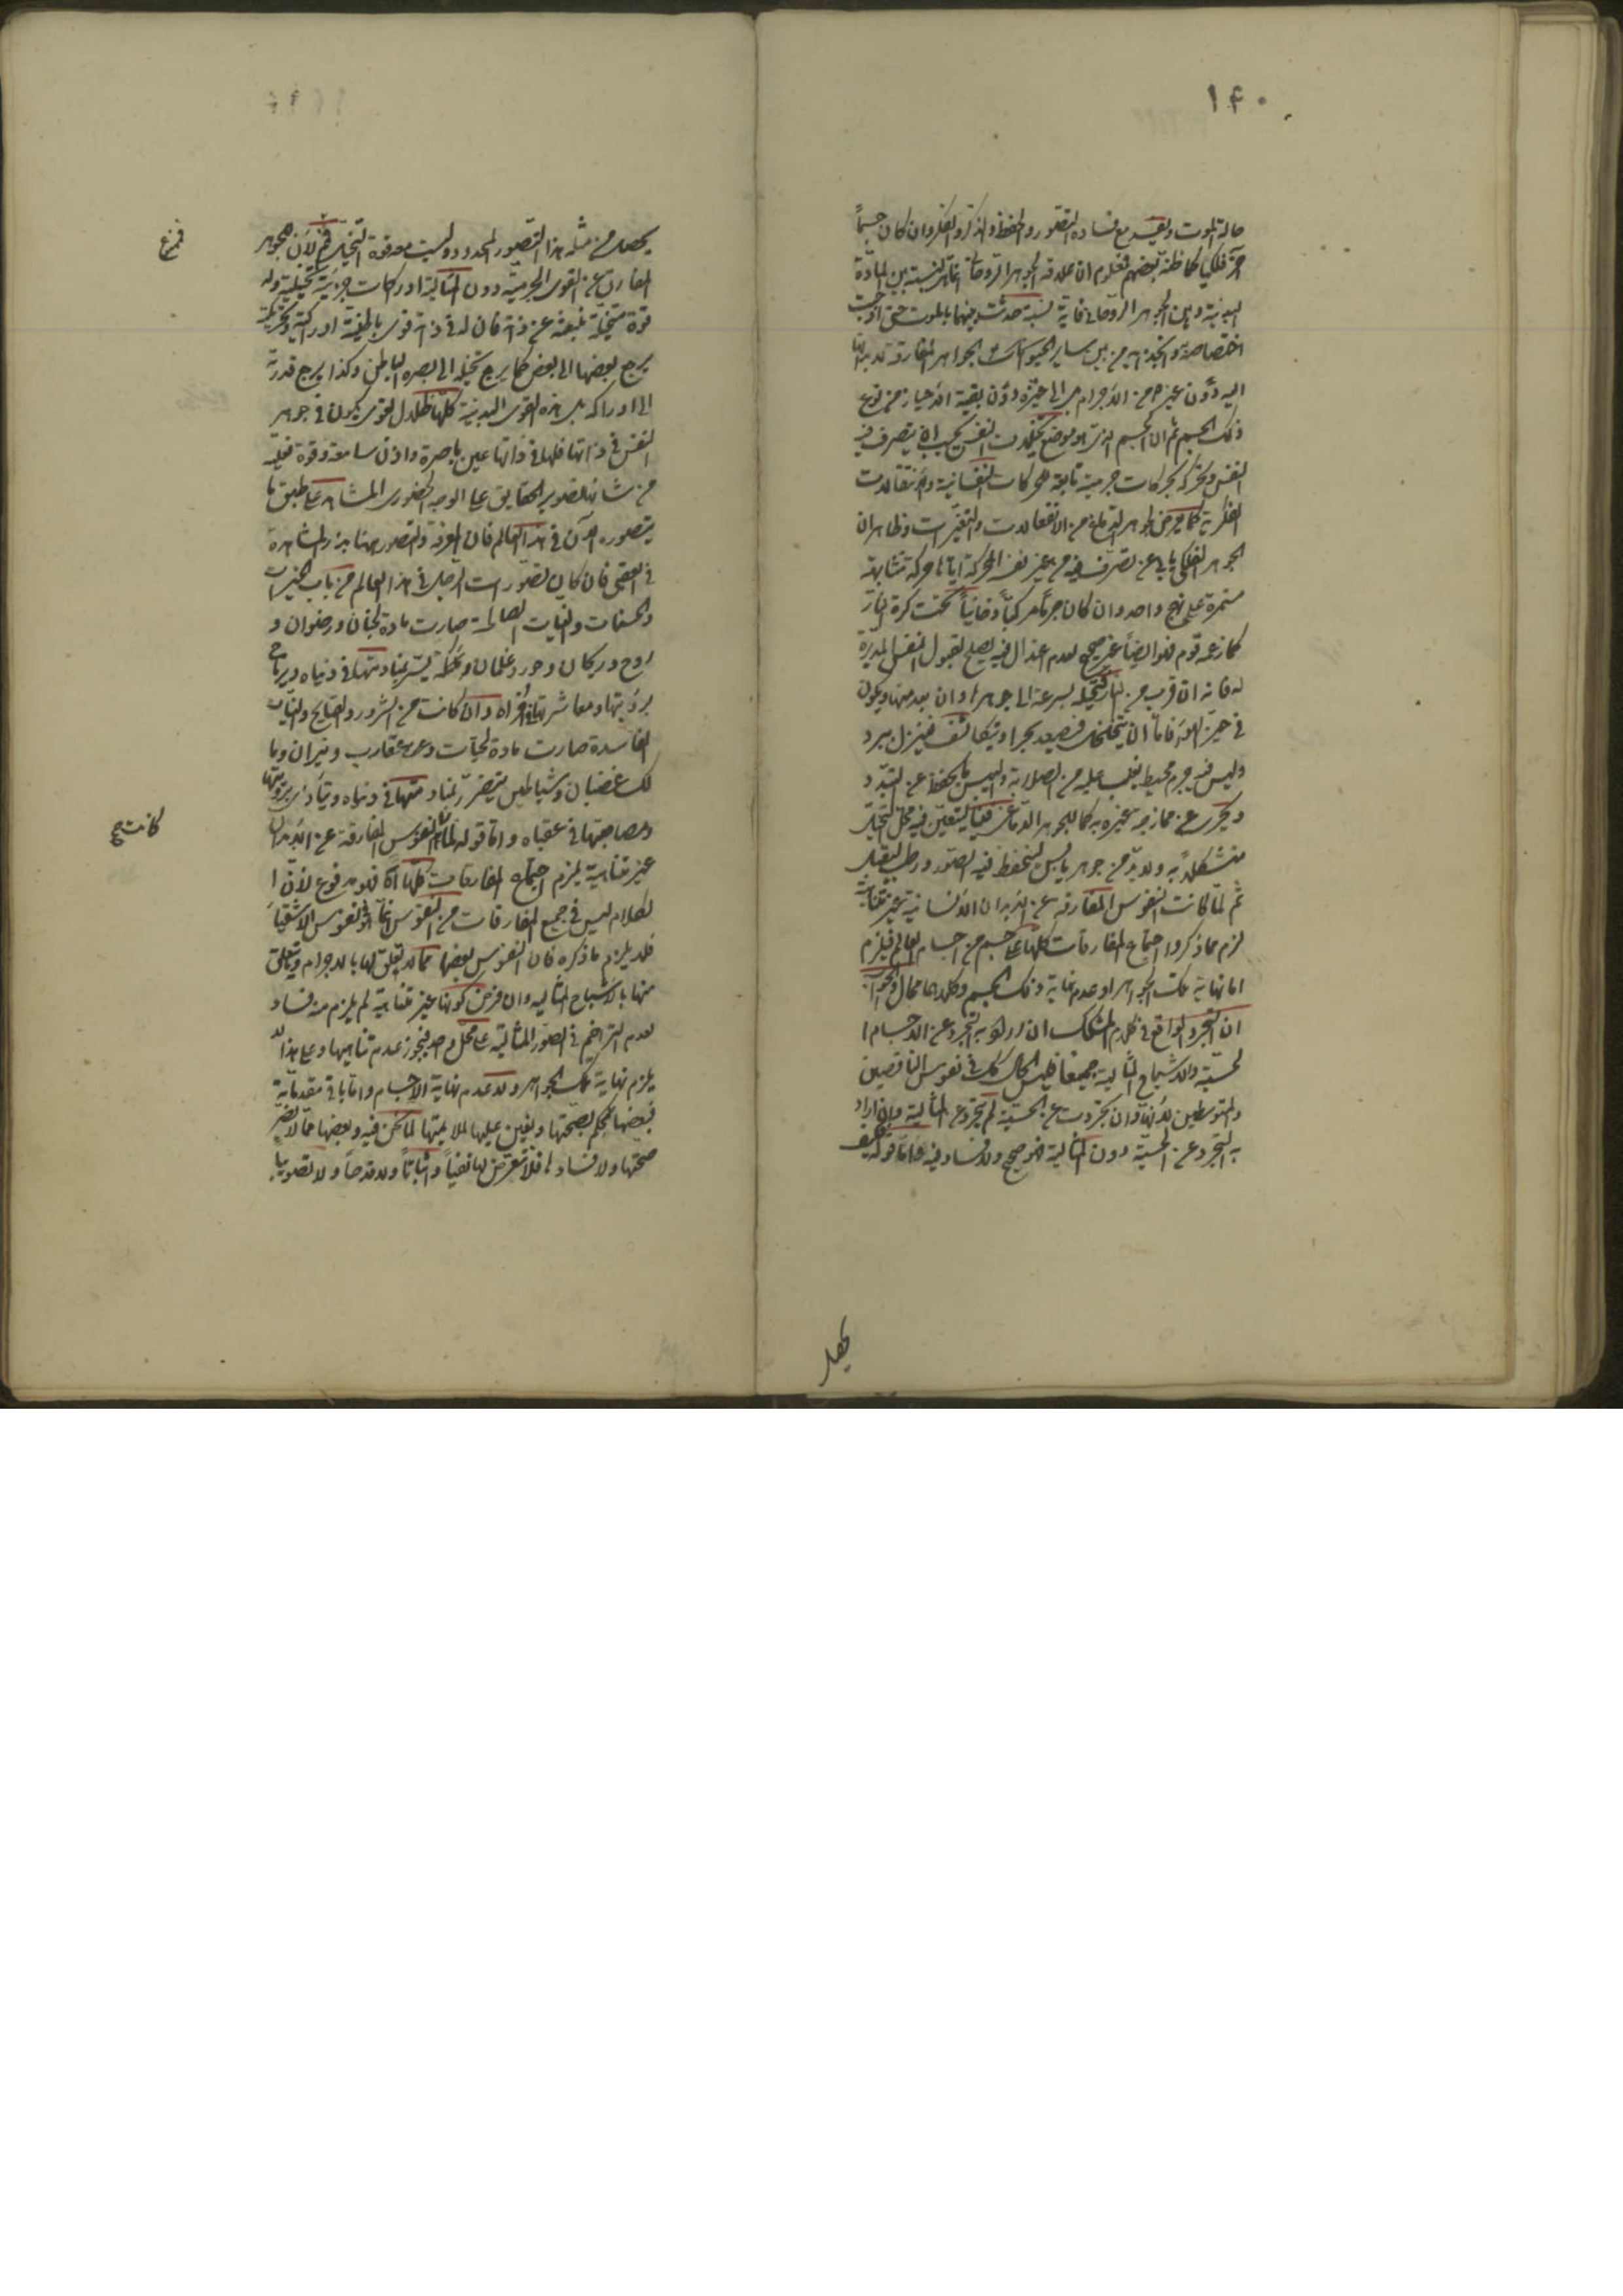 ١٤٠
حالة الموت ويفسد مع فساده التصور والحفظ والذكر والفكر وان كان جسماً
آخر فلكيا كما ظنه بعضهم فمعلوم ان علاقة الجوهر الروحاني انما هي لنسبة بين المادة
البدنية وبين الجوهر الروحاني فاية نسبة حدثت بينهما بالموت حتى اوجبت
اختصاصه وانجذابه من بين ساير الجواهر المفارقة
اليه دون غيره من الاجرام بل الى حيزه دون بقية الاحياز من نوع
ذلك الجسم ثم ان الجسم الذي هو موضوع تخيلات النفس يجب ان يتصرف فيه
النفس ويحركه بحركات جرمية تابعة للحركات النفسانية والانتقالات
الفكرية كما يعرض لجوهر الدماغ من الانفعالات والتغيرات وظاهر ان
الجوهر الفلكي يابى عن تصرف فيه من غير نفسه المحركة اياها حركة متشابهة
مستمرة على نهج واحد وان كان جرماً مركباً دخانياً تحت كرة النار
كما زعمه قوم فهو ايضاً غير صحيح لعدم اعتدال فيه يصلح لقبول النفس المدبرة
له فانه ان قرب من النار فتحيله بسرعة الى جوهرها وان بعد منها ويكون
في حيز الهواء فاما ان يتخلخل فيصعد بحر او يتكاثف فينزل ببرد
وليس فيه جرم محيط يغلب عليه من الصلابة واليبس ما يحفظ عن التبدد
ويحرس عن ممازجة غيره به كما للجوهر الدماغي فينا ليتعين فيه محل التخيل
متشكلاً به ولا بد من جوهر يابس لينحفظ فيه الصور ورطب ليقبل
ثم لما كانت النفوس المفارقة عن الابدان الانسانية غير متناهية
لزم مما ذكروا اجتماع المفارقات كلها على جسم من اجسام العالم فيلزم
اما نهاية تلك الجواهر او عدم نهاية ذلك الجسم وكلاهما محال والجواب
ان التجرد الواقع في كلام المشكك ان اراد به التجرد عن الاجسام ا
لحسية والاشباح المثالية جميعا فليس الحال كذلك في نفوس الناقصين
والمتوسطين لانها وان تجردت عن الحسية لم تتجرد عن المثالية وان اراد
به التجرد عن الحسية دون المثالية فهو صحيح ولا فساد فيه واما قوله كيف
يحصل من مثله هذا التصور المحدود وليست معه قوة التخيل فم لان الجوهر
المفارق عن القوى الجرمية دون المثالية ادراكات جزئية تخيلية وله
قوة متخيلة منبعثة عن ذاته فان له في ذاته قوى باطنية ادراكية وتحريكية
يرجع بعضها الى بعض كما يرجع تخيله الى بصره الباطن وكذا يرجع قدرته
الى ادراكه بل هذه القوى البدنية كلها ظلال لقوى يكون في جوهر
النفس في ذاتها فلها في ذاتها عين باصرة واذن سامعة وقوة فعلية
من شانها تصوير الحقايق على الوجه الحضوري المشاهد على طبق ما
يتصوره الآن في هذا العالم فان المعرفة والتصور ههنا بذر المشاهدة
في العقبى فان كان تصورات الرجل في هذا العالم من باب الخيرات
والحسنات والنيات الصالحة صارت مادة لجنان ورضوان و
روح وريحان وحور وغلمان وملائكة يستر بمنادمتها في دنياه ويرتاح
برؤيتها ومعاشرتها في اخراه وان كانت من الشرور والقبايح والنيات
الفاسدة صارت مادة لحيات وعقارب ونيران وما
لك غضبان وشياطين يتضرر بمنادمتها في دنياه ويتأذى برؤيتها
ومصاحبتها في عقباه واما قوله لما كانت النفوس المفارقة عن الابدان
غير متناهية يلزم اجتماع المفارقات كلها اه فهو مدفوع لان ا
لكلام ليس في جميع المفارقات من النفوس انما هو في نفوس الاشقياء
فلا يلزم ما ذكره فان النفوس بعضها مما لا تعلق لها بالاجرام ويتعلق
منها بالاشباح المثالية وان فرض كونها غير متناهية لم يلزم منه فساد
لعدم التزاحم في الصور المثالية على محل واحد فيجوز عدم تناهيها وعلى هذا لا
يلزم نهاية تلك الجواهر ولا عدم نهاية الاجسام واما باقي مقدماته
فبعضها نحكم بصحتها ونعين عليها لملايمتها لما نحن فيه وبعضها مما لا يضر
صحتها ولا فسادها فلا نتعرض لها نفياً واثباتاً ولا قدحاً ولا تصويبا
فمنع
كانت صح
يحصل